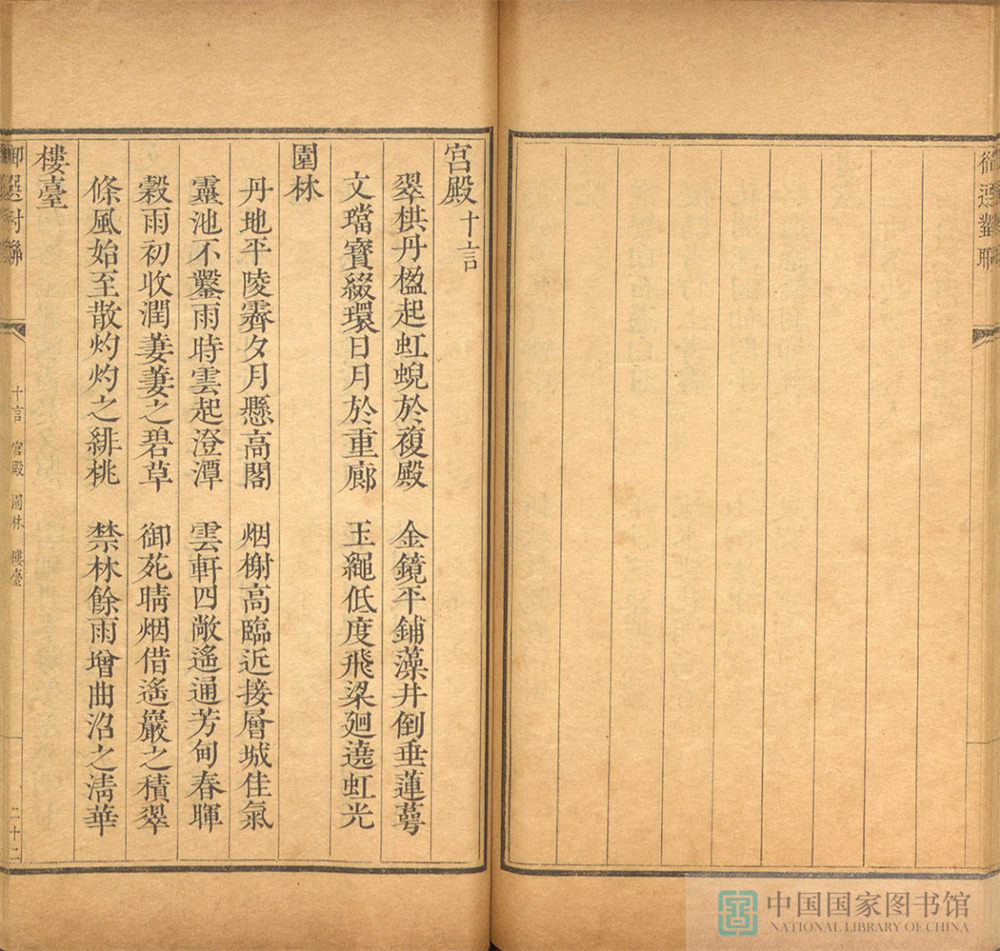 御選對聯
宫殿十言
翠栱丹楹起虹蜺於複殿　金鏡平鋪藻井倒垂蓮蕚
文璫寶綴環日月於重廊　玉繩低度飛梁廻遶虹光
園林
丹地平陵霽夕月懸高閣　烟榭高臨近接層城佳氣
靈池不鑿雨時雲起澄潭　雲軒四敞遙通芳甸春暉
穀雨初收潤萋萋之碧草　御苑晴烟借遙巖之積翠
條風始至散灼灼之緋桃　禁林餘雨增曲沼之淸華
樓臺
御選對聯
十言　宮殿　園林　樓臺
二十二
中国国家图书馆
NATIONAL LIBRARY OF CHINA